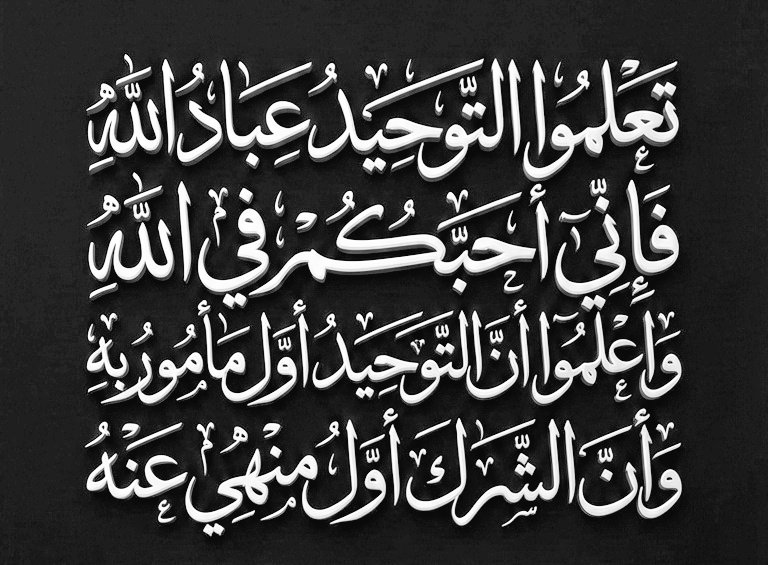 تَعَلَّمُوا التَّوْحِيدَ عِبَادَ اللَّهِ
فَإِنِّي أُحِبُّكُمْ فِي اللَّهِ
وَاعْلَمُوا أَنَّ التَّوْحِيدَ أَوَّلُ مَأْمُورٍ بِهِ
وَأَنَّ الشِّرْكَ أَوَّلُ مَنْهِيٍّ عَنْهُ